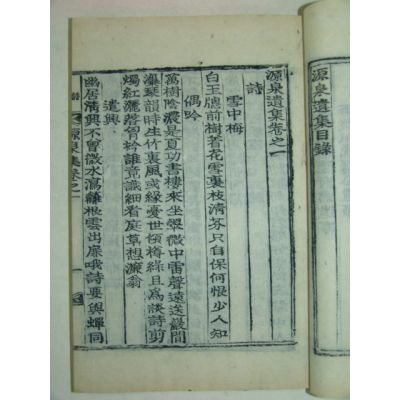 源泉遺集目錄
源泉遺集卷之一
詩
雪中梅
白玉牕前樹著花雪裏枝清芬只自保何恨少人知
偶吟
萬樹陰濃是夏功書樓來坐翠微中雷聲遠送巖間
瀑琴韻時生竹裏風或緣憂世傾樽綠且爲談詩剪
燭紅灑胷衿誰識細看庭草想濂翁
遣興
幽居清興不曾微水瀉籬根雲出扉哦詩要與蟬同
詩 源泉集卷之一 一